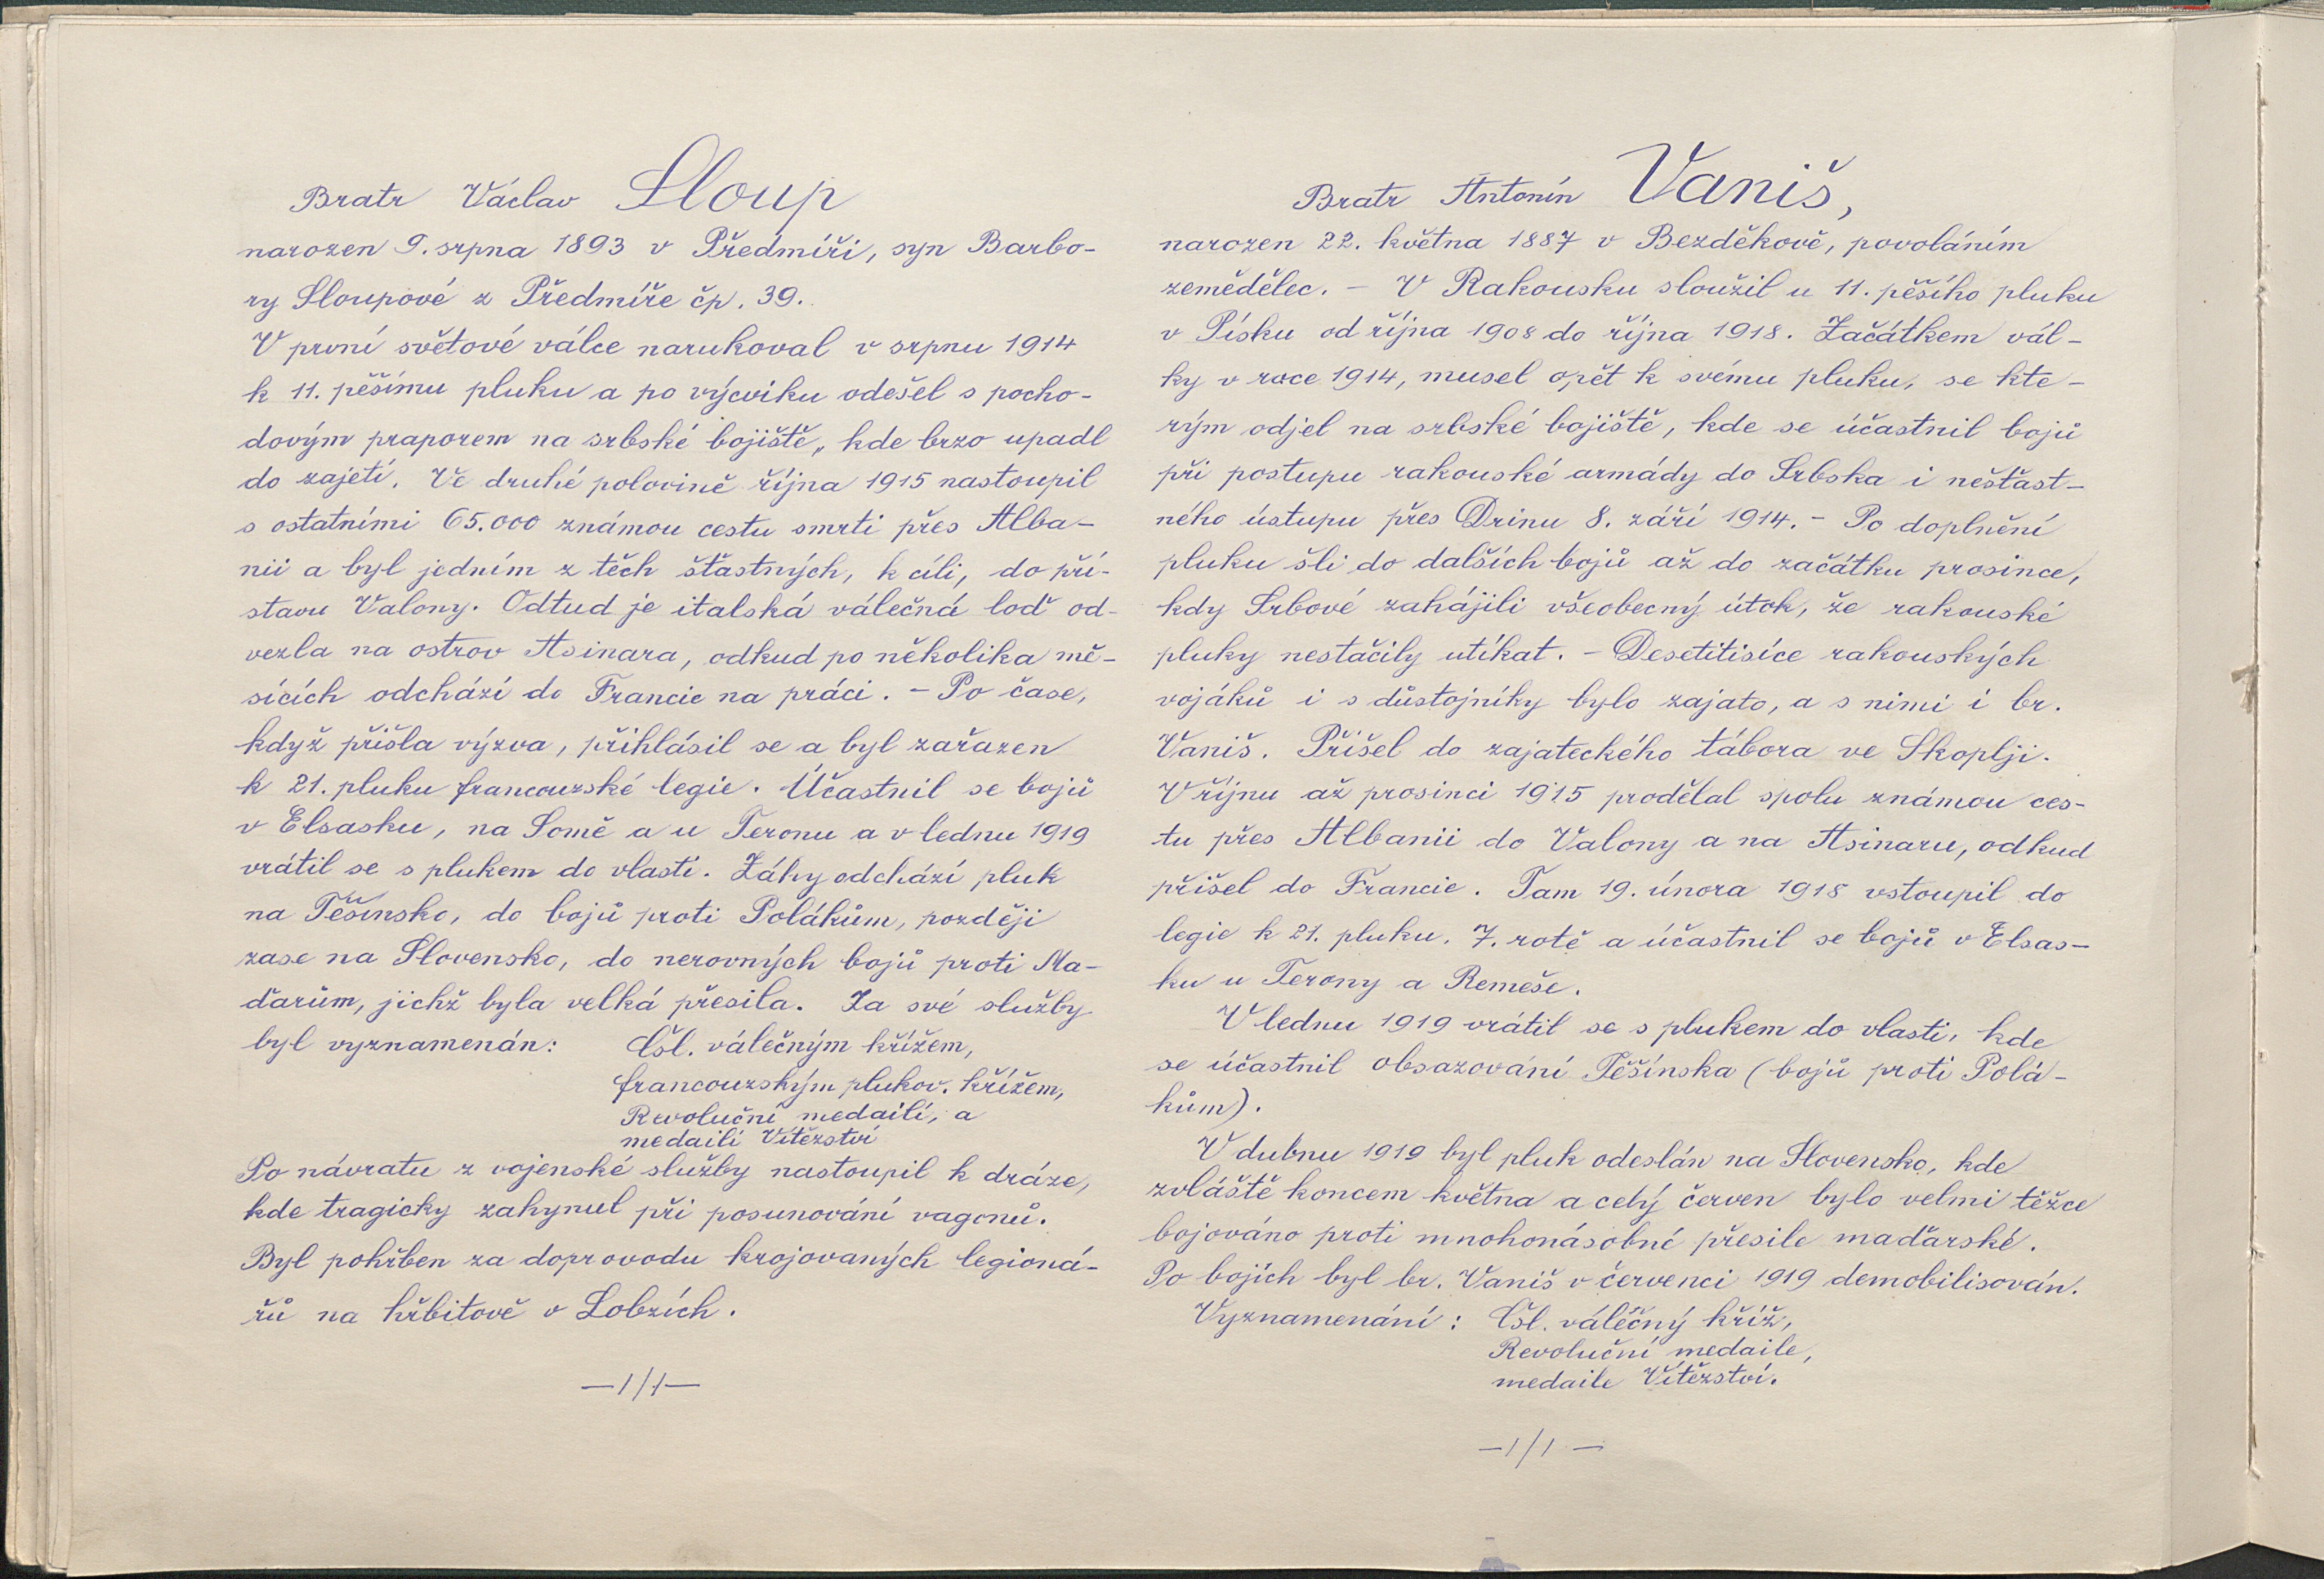 Bratr Václav Sloup
narozen 9. srpna 1893 v Předmíři, syn Barbo-
ry Sloupové z Předmíře čp. 39.
V první světové válce narukoval v srpnu 1914
k 11. pěšímu pluku a po výcviku odešel s pocho-
dovým praporem na srbské bojiště, kde brzo upadl
do zajetí. Ve druhé polovině října 1915 nastoupil
s ostatními 65.000 známou cestu smrti přes Alba-
nii a byl jedním z těch šťastných, k cíli, do pří-
stavu Valony. Odtud je italská válečná loď od-
vezla na ostrov Asinara, odkud po několika mě-
sících odchází do Francie na práci. - Po čase,
když přišla výzva, přihlásil se a byl zařazen
k 21. pluku francouzské legie. Účastnil se bojů
v Elsasku, na Somě a u Teronu a v lednu 1919
vrátil se s plukem do vlasti. Záhy odchází pluk
na Těšínsko, do bojů proti Polákům, později
zase na Slovensko, do nerovných bojů proti Ma-
ďarům, jichž byla velká přesila. Za své služby
byl vyznamenán: Čsl. válečným křížem,
francouzským plukov. křížem,
Revoluční medailí, a
medailí Vítězství
Po návratu z vojenské služby nastoupil k dráze,
kde tragicky zahynul při posunování vagonů.
Byl pohřben za doprovodu krojovaných legioná-
řů na hřbitově v Lobzích.
—1/1—
Bratr Antonín Vaniš,
narozen 22. května 1887 v Bezděkově, povoláním
zemědělec. - V Rakousku sloužil u 11. pěšího pluku
v Písku od října 1908 do října 1918. Začátkem vál-
ky v roce 1914, musel opět k svému pluku, se kte-
rým odjel na srbské bojiště, kde se účastnil bojů
při postupu rakouské armády do Srbska i nešťast-
ného ústupu přes Drinu 8. září 1914. - Po doplnění
pluku šli do dalších bojů až do začátku prosince,
kdy Srbové zahájili všeobecný útok, že rakouské
pluky nestačily utíkat. - Desetitisíce rakouských
vojáků i s důstojníky bylo zajato, a s nimi i br.
Vaniš. Přišel do zajateckého tábora ve Skoplji.
V říjnu až prosinci 1915 prodělal spolu známou ces-
tu přes Albanii do Valony a na Asinaru, odkud
přišel do Francie. Tam 19. února 1918 vstoupil do
legie k 21. pluku, 7. rotě a účastnil se bojů v Elsas-
ku u Terony a Remeše.
V lednu 1919 vrátil se s plukem do vlasti, kde
se účastnil obsazování Těšínska (bojů proti Polá-
kům).
V dubnu 1919 byl pluk odeslán na Slovensko, kde
zvláště koncem května a celý červen bylo velmi těžce
bojováno proti mnohonásobné přesile maďarské.
Po bojích byl br. Vaniš v červenci 1919 demobilisován.
Vyznamenání: Čsl. válečný kříž,
Revoluční medaile,
medaile Vítězství.
—1/1—